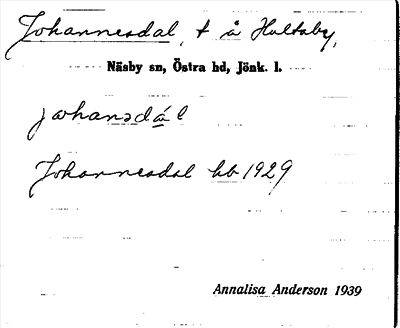 Johannesdal, t å Hultaby,
Näsby sn, Östra hd, Jönk. l.
johanədál
Johannesdal hb 1929
Annalisa Anderson 1939